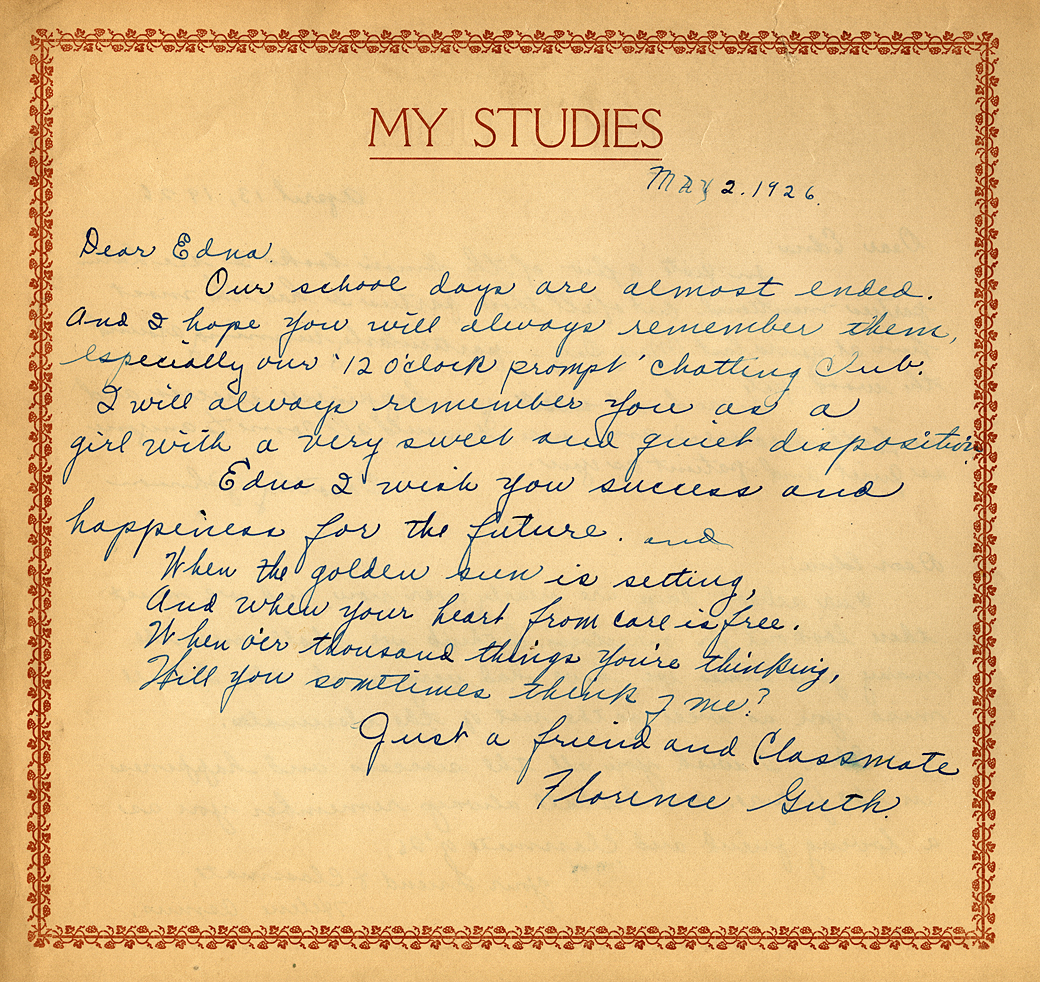 MY STUDIES
MAY 2. 1926.
Dear Edna.
Our school days are almost ended.
And I hope you will always remember them,
especially our '12 o'clock prompt' chatting Club.
I will always remember you as a
girl with a very sweet and quiet disposition
Edna I wish you success and
happiness for the future. and
When the golden sun is setting,
And when your heart from care is free.
When o'er thousand things you're thinking,
Will you sometimes think of me?
Just a friend and Classmate
Florence Guth.